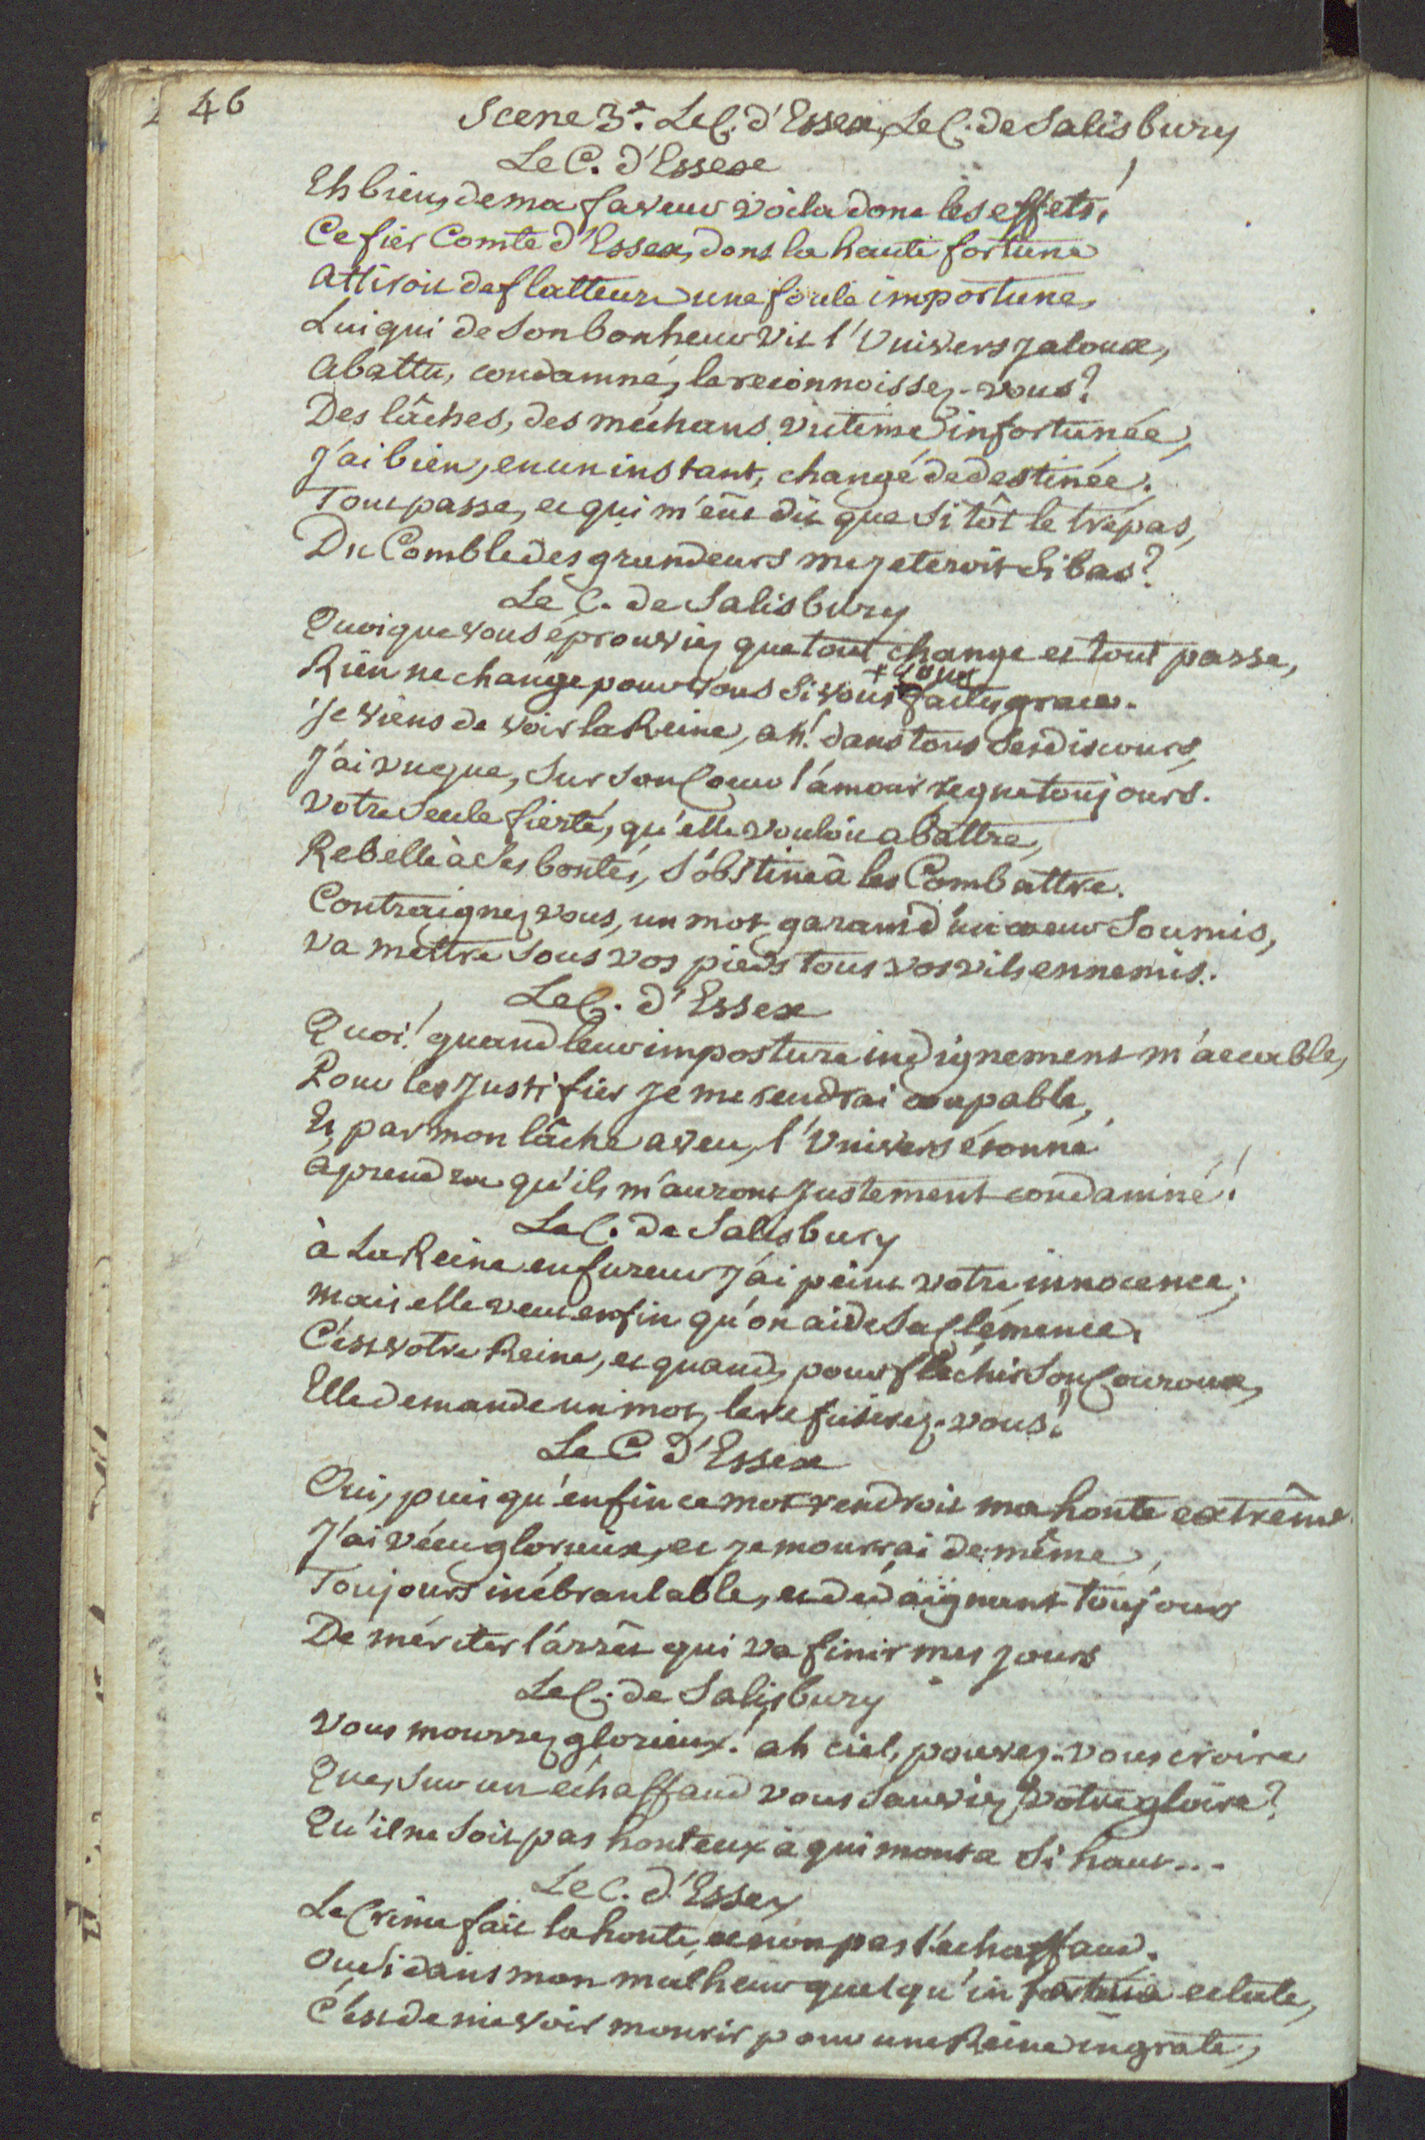 46
Scene 3.e Le C. d'Essex, Le C. de Salisbury
Le C. d'Essex
Eh bien, de ma faveur voila donc les effets!
Ce fier Comte d'Essex, dont la haute fortune
Attiroit de flatteurs une foule importune,
Lui qui de son bonheur vit l'Univers jaloux,
Abattu, condamné, le reconnoissez-vous?
Des lâches, des méchans victime infortunée,
J'ai bien, en un instant, changé de destinée.
Tout passe, et qui m'eût dit que sitôt le trépas,
Du Comble des grandeurs me jeteroit si bas?
Le C. de Salisbury
Quoique vous éprouviez que tout change et tout passe,
Rien ne change pour vous si vous + vous faites grace.
Je viens de voir la Reine, ah! dans tous ses discours,
J'ai vu que, sur son Coeur l'amour regne toujours.
Votre seule fierté, qu'elle vouloit abattre,
Rebelle à ses bontés, s'obstine à les Combattre.
Contraignez vous, un mot, garant d'un coeur soumis,
Va mettre sous vos pieds tous vos vils ennemis.
Le C. d'Essex
Quoi! quand leur imposture indignement m'accable,
Pour les justifier je me rendrai coupable,
Et, par mon lâche aveu, l'Univers étonné
Aprendra qu'ils m'auront justement condamné!
Le C. de Salisbury
à La Reine en fureur j'ai peint votre innocence;
Mais elle veut enfin qu'on aide sa Clémence.
C'est votre Reine, et quand, pour fléchir son Couroux,
Elle demande un mot, le refuserez-vous?
Le C. d'Essex
Oui, puis qu'enfin ce mot rendroit ma honte extrême
J'ai vécu glorieux, et je mourrai de même,
Toujours inébranlable, et dédaignant toujours
De mériter l'arrêt qui va finir mes jours
Le C. de Salisbury
Vous mourrez glorieux! ah ciel, pouvez-vous croire
Que, sur un échaffaud vous sauviez votre gloire?
Qu'il ne soit pas honteux à qui monta si haut...
Le C. d'Essex
Le Crime fait la honte, et non pas l'echaffaud.
Ou si dans mon malheur quelqu'infortune eclate,
C'est de me voir mourir pour une Reine ingrate,